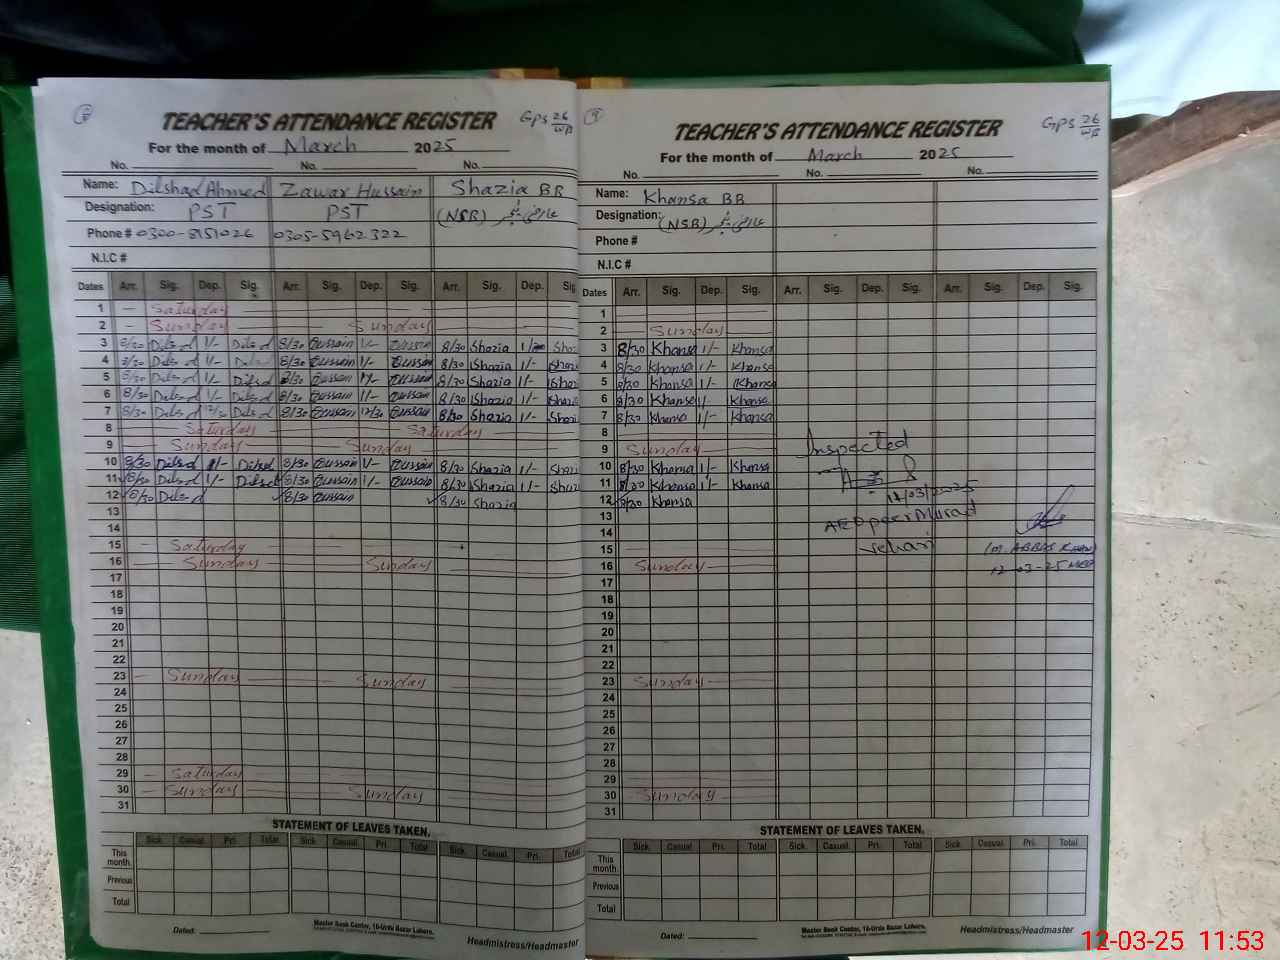 TEACHER'S ATTENDANCE REGISTER
GPS 26/WB
For the month of March 2025
No. No. No.
Name: Dilshad Ahmed Zawar Hussain Shazia BB
Designation: PST PST (NSB) عارضی ٹیچر
Phone # 0300-8151026 0305-5962322
N.I.C #
Dates Arr. Sig. Dep. Sig. Arr. Sig. Dep. Sig. Arr. Sig. Dep. Sig.
1 — Saturday
2 — Sunday Sunday
3 8/30 Dilsd 1/- Dilsd 8/30 Hussain 1/- Hussain 8/30 Shazia 1/- Shaz
4 8/30 Dilsd 1/- Dilsd 8/30 Hussain 1/- Hussain 8/30 Shazia 1/- Shazi
5 8/30 Dilsd 1/- Dilsd 8/30 Hussain 1/- Hussain 8/30 Shazia 1/- Shazi
6 8/30 Dilsd 1/- Dilsd 8/30 Hussain 1/- Hussain 8/30 Shazia 1/- Shazi
7 8/30 Dilsd 12/30 Dilsd 8/30 Hussain 12/30 Hussain 8/30 Shazia 1/- Shazi
8 Saturday Saturday
9 — Sunday Sunday
10 8/30 Dilsd 1/- Dilsd 8/30 Hussain 1/- Hussain 8/30 Shazia 1/- Shazi
11 8/30 Dilsd 1/- Dilsd 8/30 Hussain 1/- Hussain 8/30 Shazia 1/- Shazi
12 8/30 Dilsd 8/30 Hussain 8/30 Shazia
13
14
15 — Saturday
16 — Sunday Sunday
17
18
19
20
21
22
23 — Sunday Sunday
24
25
26
27
28
29 — Saturday
30 — Sunday Sunday
31
STATEMENT OF LEAVES TAKEN.
Sick. Casual. Pri. Total Sick. Casual. Pri. Total Sick. Casual. Pri. Total
This month.
Previous
Total
Dated:
Master Book Center, 16-Urdu Bazar Lahore.
Headmistress/Headmaster
9
TEACHER'S ATTENDANCE REGISTER
GPS 26/WB
For the month of March 2025
No. No. No.
Name: Khansa BB
Designation: (NSB) عارضی ٹیچر
Phone #
N.I.C #
Dates Arr. Sig. Dep. Sig. Arr. Sig. Dep. Sig. Arr. Sig. Dep. Sig.
1
2 Sunday
3 8/30 Khansa 1/- Khansa
4 8/30 Khansa 1/- Khansa
5 8/30 Khansa 1/- Khansa
6 8/30 Khansa 1/- Khansa
7 8/30 Khansa 1/- Khansa
8
9 Sunday
10 8/30 Khansa 1/- Khansa
11 8/30 Khansa 1/- Khansa
12 8/30 Khansa
13
14
15
16 Sunday
17
18
19
20
21
22
23 Sunday
24
25
26
27
28
29
30 Sunday
31
Inspected
12/03/2025
AEO peer Murad
Vehari
(M. ABBAS KHAN)
12-03-25 MEA
STATEMENT OF LEAVES TAKEN.
Sick. Casual. Pri. Total Sick. Casual. Pri. Total Sick. Casual. Pri. Total
This month.
Previous
Total
Dated:
Master Book Center, 16-Urdu Bazar Lahore.
Headmistress/Headmaster
12-03-25 11:53